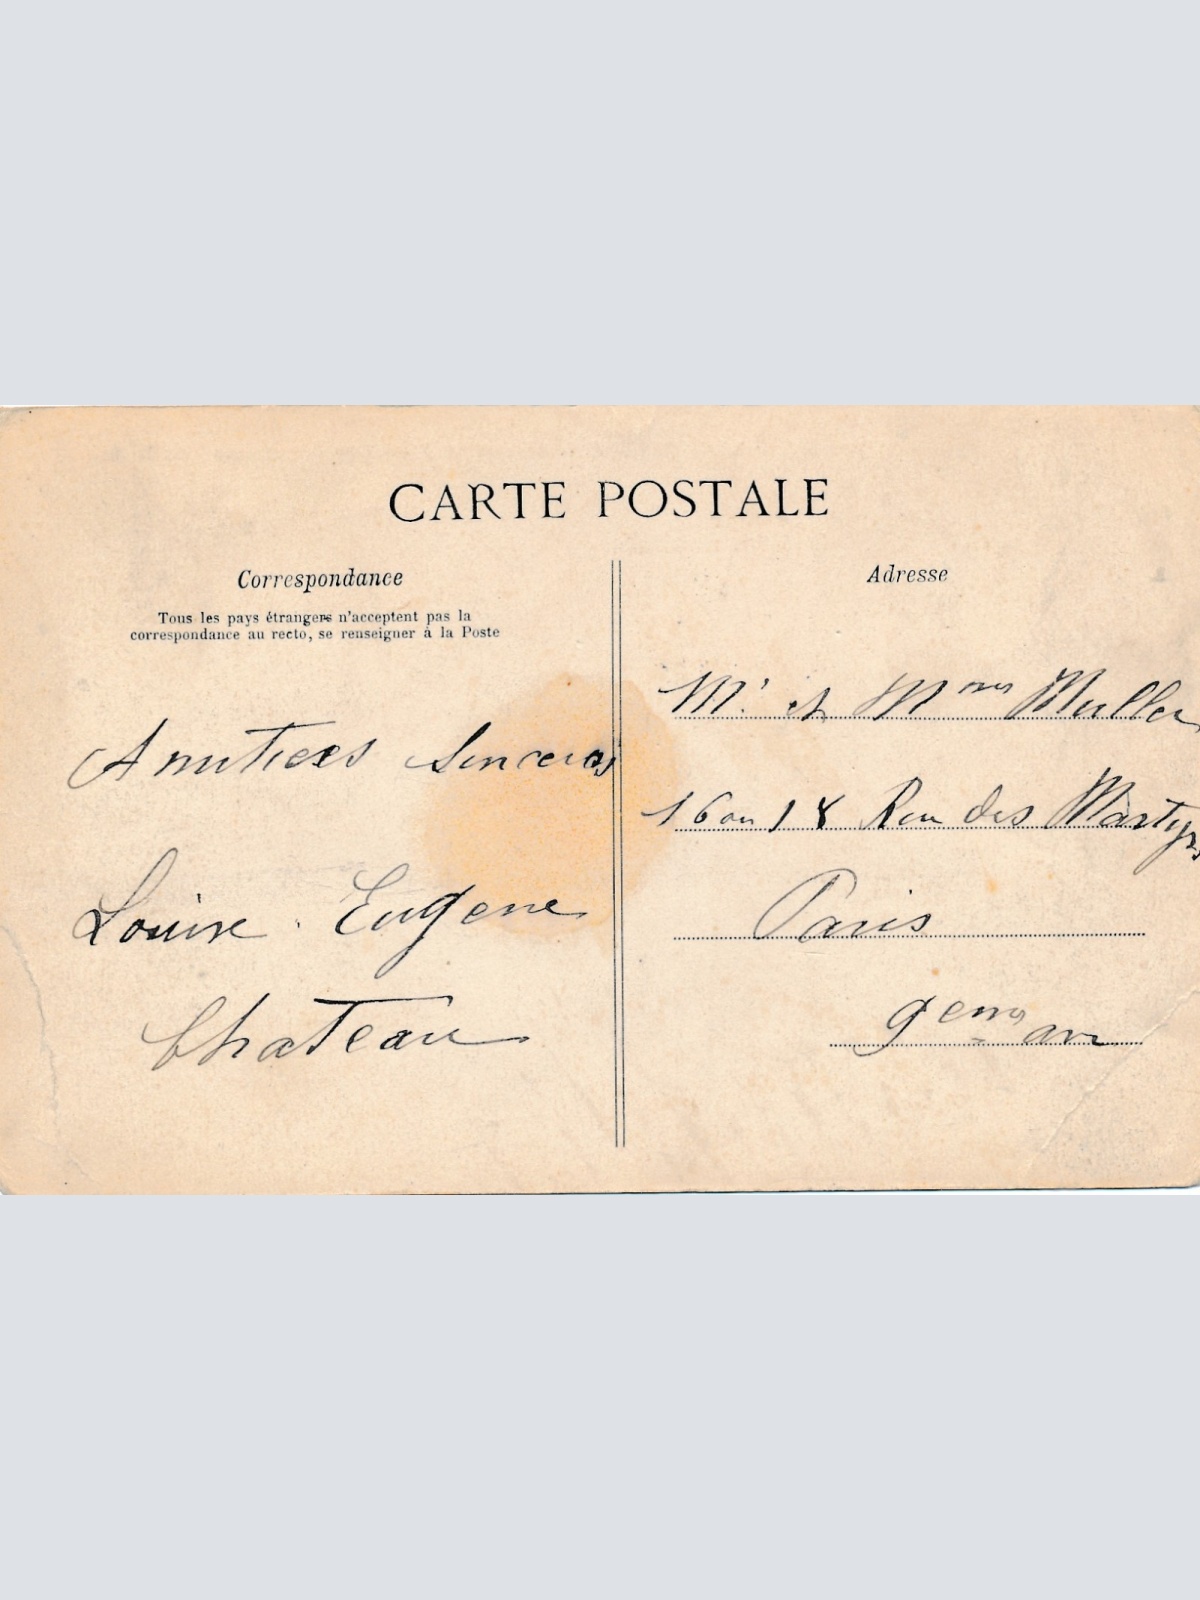 CARTE POSTALE
Correspondance
Tous les pays étrangers n'acceptent pas la
correspondance au recto, se renseigner à la Poste
Amitiees Sinceres
Louise Eugene
Chateau
Adresse
Mr et Mmes Muller
16 ou 18 Rue des Martyrs
Paris
9eme arr